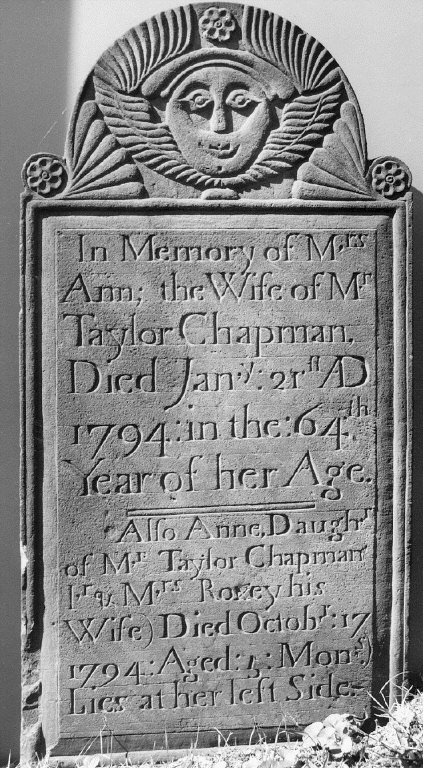 In Memory of Mrs
Ann; the Wife of Mr
Taylor Chapman.
Died Jan.y: 21st AD
1794: in the: 64th
Year of her Age.
Also Anne, Daughr
of Mr Taylor Chapman
Jr & Mrs Roxey his
Wife) Died Octobr: 17
1794: Aged: 5: Mons)
Lies at her left Side